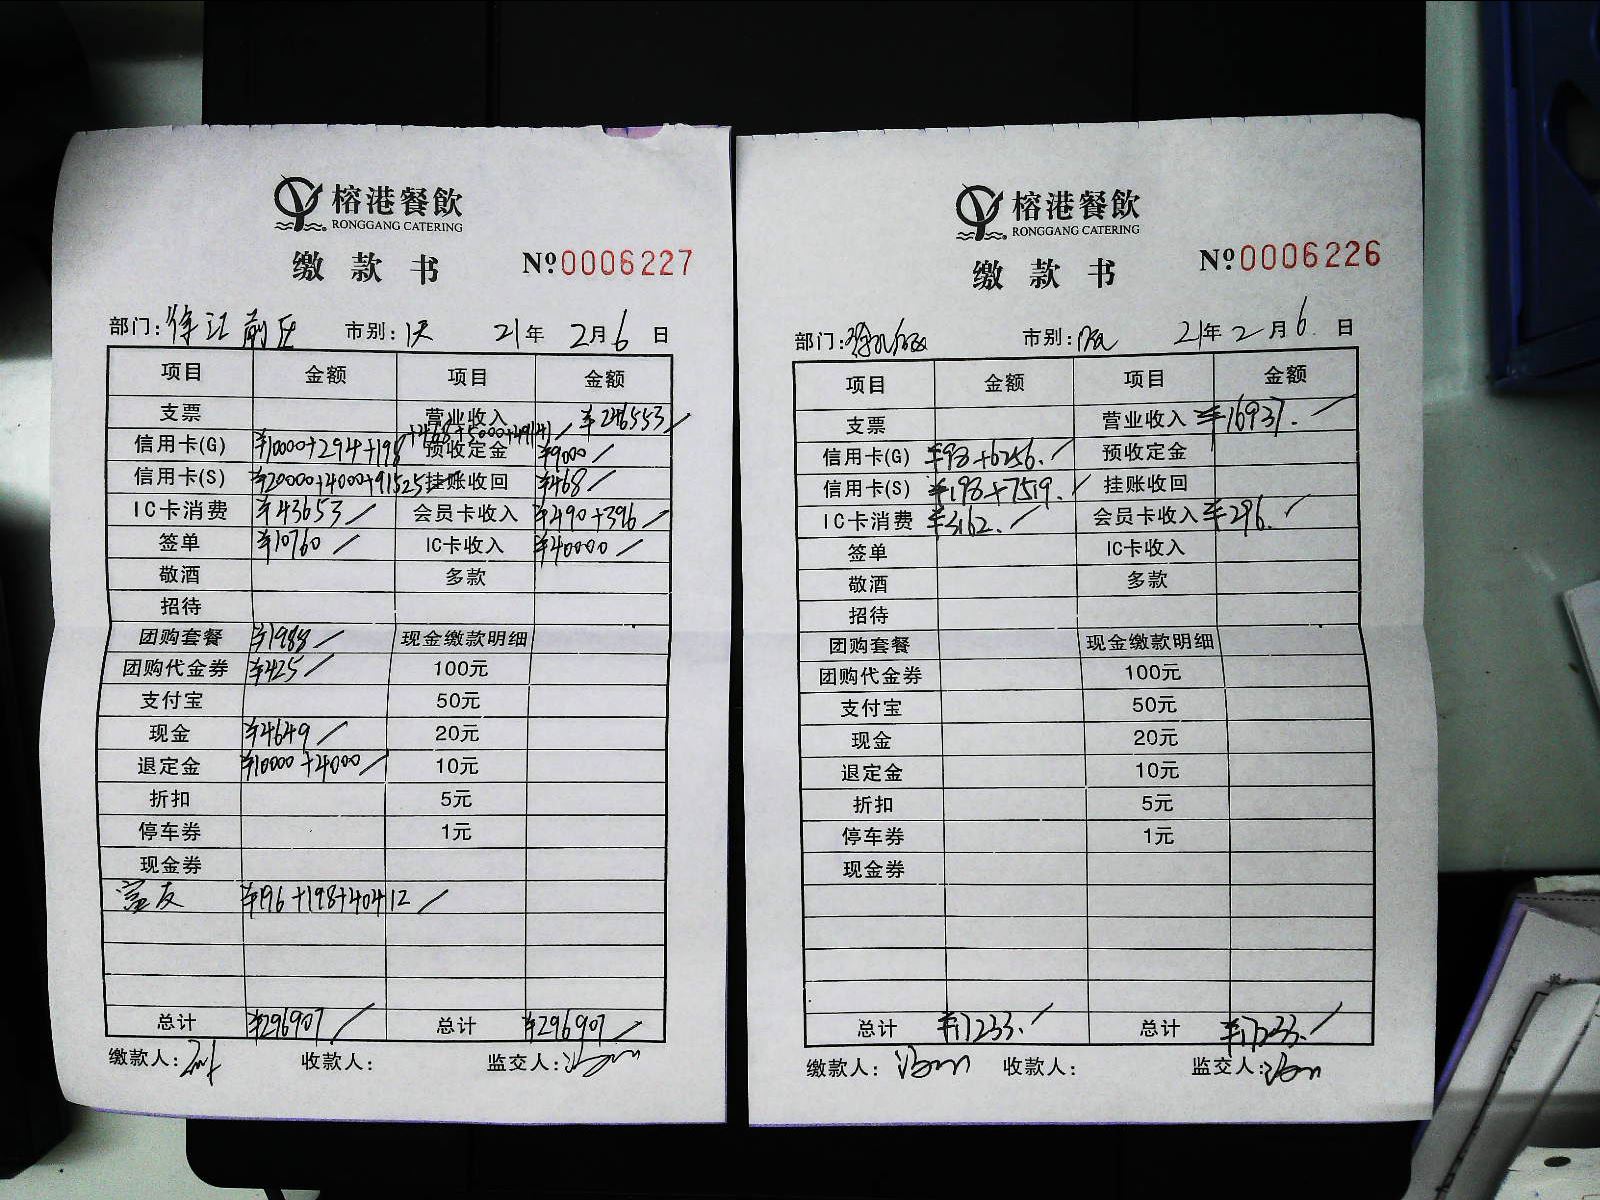 榕港餐飲
RONGGANG CATERING
缴款书 Nº0006227
部门: 市别: 天 21年 2月6日
项目 金额 项目 金额
支票 营业收入 ¥246553
信用卡(G) ¥10000+294+198+468+5000+49141 预收定金 ¥9000
信用卡(S) ¥20000+4000+91525 挂账收回 ¥468
IC卡消费 ¥43653 会员卡收入 ¥490+396
签单 ¥10760 IC卡收入 ¥40000
敬酒 多款
招待
团购套餐 ¥1988 现金缴款明细
团购代金券 ¥425 100元
支付宝 50元
现金 ¥4649 20元
退定金 ¥10000+4000 10元
折扣 5元
停车券 1元
现金券
¥196+198+40412
总计 ¥296907 总计 ¥296907
缴款人: 收款人: 监交人:
榕港餐飲
RONGGANG CATERING
缴款书 Nº0006226
部门: 市别: 21年2月6日
项目 金额 项目 金额
支票 营业收入 ¥16937.
信用卡(G) ¥98+6256. 预收定金
信用卡(S) ¥198+7519. 挂账收回
IC卡消费 ¥3162. 会员卡收入 ¥296.
签单 IC卡收入
敬酒 多款
招待
团购套餐 现金缴款明细
团购代金券 100元
支付宝 50元
现金 20元
退定金 10元
折扣 5元
停车券 1元
现金券
总计 ¥17233. 总计 ¥17233.
缴款人: 收款人: 监交人: